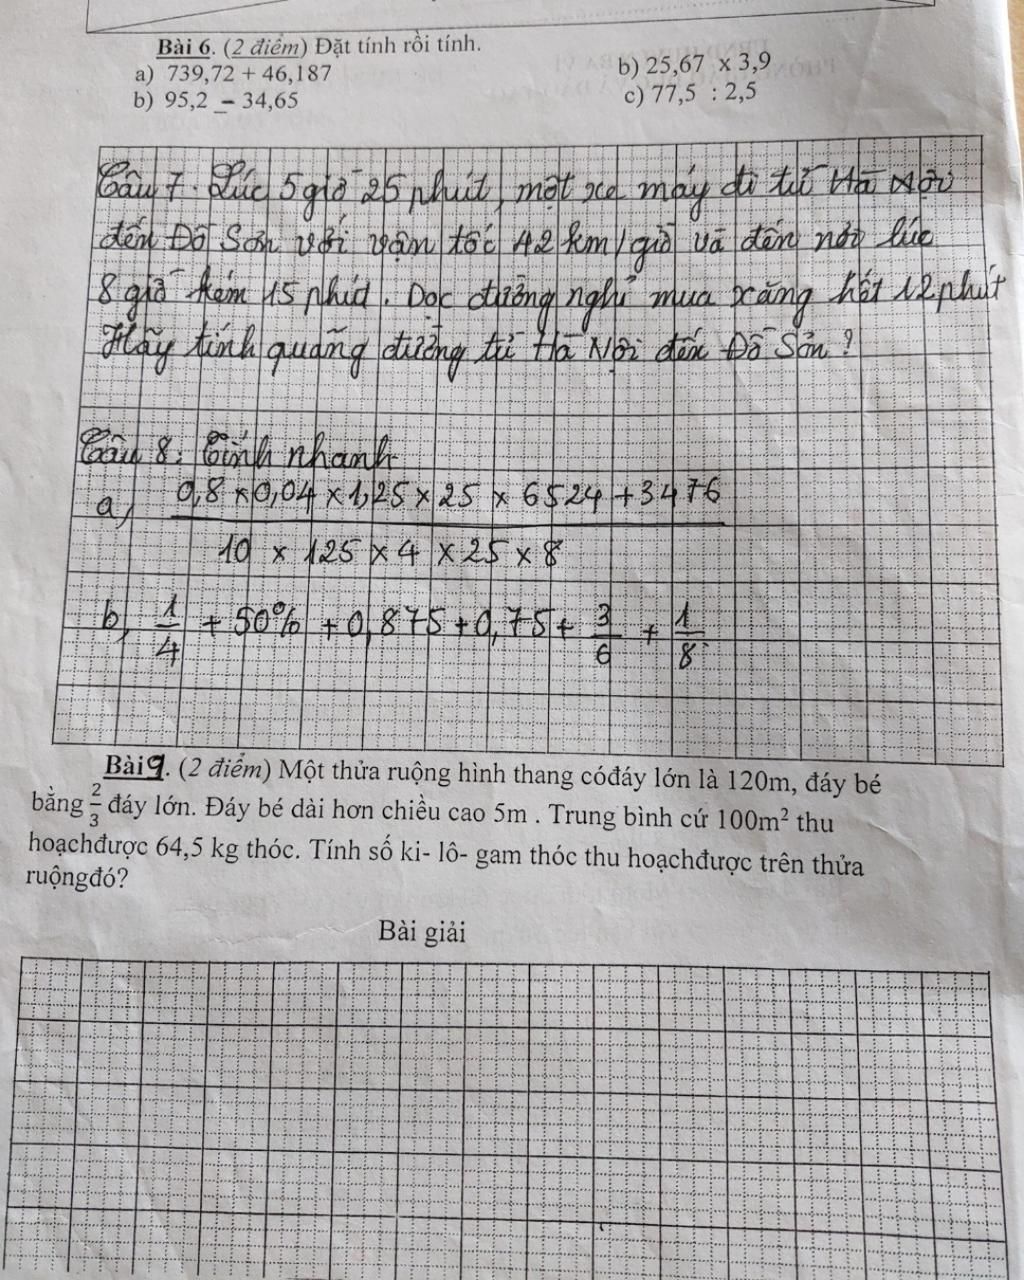 Bài 6. (2 điểm) Đặt tính rồi tính.
a) 739,72 + 46,187
b) 25,67 x 3,9
b) 95,2 – 34,65
c) 77,5 : 2,5
Câu 7. Lúc 5 giờ 25 phút, một xe máy đi từ Hà Nội
đến Đồ Sơn với vận tốc 42 km/giờ và đến nơi lúc
8 giờ kém 15 phút. Dọc đường nghỉ mua xăng hết 12 phút
Hãy tính quãng đường từ Hà Nội đến Đồ Sơn?
Câu 8: Tính nhanh
a, 0,8 x 0,04 x 1,25 x 25 x 6524 + 3476
10 x 125 x 4 x 25 x 8
b, 1/4 + 50% + 0,875 + 0,75 + 3/6 + 1/8
Bài 9. (2 điểm) Một thửa ruộng hình thang cóđáy lớn là 120m, đáy bé
bằng 2/3 đáy lớn. Đáy bé dài hơn chiều cao 5m . Trung bình cứ 100m² thu
hoạchđược 64,5 kg thóc. Tính số ki- lô- gam thóc thu hoạchđược trên thửa
ruộngđó?
Bài giải